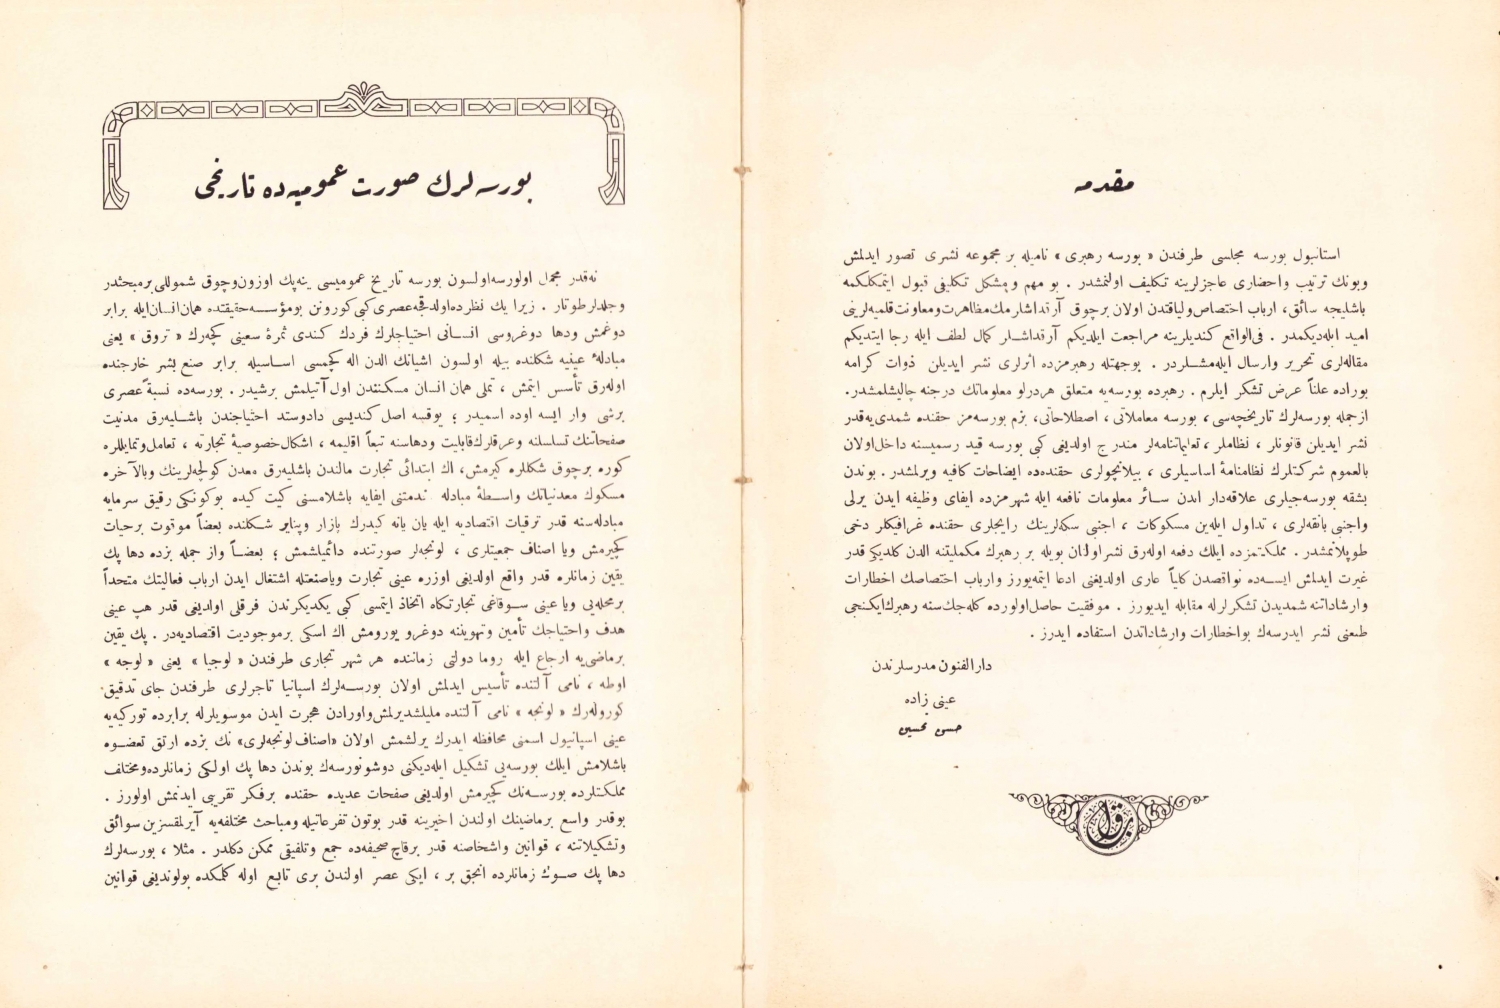 مقدمه
استانبول بورسه مجلسی طرفندن « بورسه رهبری » نامیله بر مجموعه نشری تصور ایدلمش
وبونك ترتیب واحضاری عاجزلرینه تكلیف اولنمشدر . بو مهم ومشكل تكلیفی قبول ایتمكلكمه
باشلیجه سائق، ارباب اختصاص ولیاقتدن اولان برچوق آرقداشلرمك مظاهرت ومعاونت قلمیه‌لرینی
امید ایله‌دیكمدر . فی‌الواقع كندیلرینه مراجعت ایلدیكم آرقداشلر كمال لطف ایله رجا ایتدیكم
مقاله‌لری تحریر وارسال ایله‌مشلردر . بوجهتله رهبرمزده اثرلری نشر ایدیلن ذوات كرامه
بوراده علناً عرض تشكر ایلرم . رهبرده بورسه‌یه متعلق هردرلو معلوماتك درجنه چالیشلمشدر.
ازجمله بورسه‌لرك تاریخچه‌سی، بورسه معاملاتی، اصطلاحاتی، بزم بورسه‌مز حقنده شمدی‌یه‌قدر
نشر ایدیلن قانونلر، نظاملر، تعلیماتنامه‌لر مندرج اولدیغی كبی بورسه قید رسمیسنه داخل‌اولان
بالعموم شركتلرك نظامنامۀ اساسیلری ، بیلانچولری حقنده‌ده ایضاحات كافیه ویرلمشدر . بوندن
بشقه بورسه‌جیلری علاقه‌دار ایدن سائر معلومات نافعه ایله شهرمزده ایفای وظیفه ایدن یرلی
واجنبی بانقه‌لری ، تداول ایله‌ین مسكوكات ، اجنبی سكه‌لرینك رایجلری حقنده غرافیكلر دخی
طوپلانمشدر . مملكتمزده ایلك دفعه اوله‌رق نشراولنان بویله بر رهبرك مكملیتنه الدن كلدیكی قدر
غیرت ایدلمش ایسه‌ده نواقصدن كلیاً عاری اولدیغنی ادعا ایتمه‌یورز وارباب اختصاصك اخطارات
وارشاداتنه شمدیدن تشكرلرله مقابله ایدیورز . موفقیت حاصل‌اولورده كله‌جك‌سنه رهبرك‌ایكنجی
طبعنی نشر ایدرسه‌ك بواخطارات وارشاداتدن استفاده ایدرز .
دارالفنون مدرسلرندن
عینی زاده
حسن تحسین
بورسه‌لرك صورت عمومیه‌ده تاریخی
نه‌قدر مجمل اولورسه‌اولسون بورسه تاریخ عمومیسی ینه‌پك اوزون‌وچوق شموللی‌برمبحثدر
وجلدلرطوتار . زیرا یك نظرده‌اولدقجه‌عصری‌كبی‌كورونن بومؤسسه‌حقیقتده همان‌انسان‌ایله برابر
دوغمش ودها دوغروسی انسانی احتیاجلرك فردك كندی ثمرۀ سعینی كچه‌رك « تروق » یعنی
مبادلۀ عینیه شكلنده بیله اولسون اشیانك الدن اله كچمسی اساسیله برابر صنع بشر خارجنده
اوله‌رق تأسس ایتمش ، تملی همان انسان مسكنندن اول آتیلمش برشیدر . بورسه‌ده نسبةً‌عصری
برشی وار ایسه اوده اسمیدر ؛ یوقسه اصل كندیسی دادوستد احتیاجندن باشلیه‌رق مدنیت
صفحاتنك تسلسلنه وعرقلرك‌قابلیت ودهاسنه تبعاً اقلیمه ، اشكال‌خصوصیۀ تجارته ، تعامل‌وتمایللره
كوره برچوق شكللره كیرمش، اك ابتدائی تجارت مالندن باشلیه‌رق معدن كولچه‌لرینك وبالآخره
مسكوك معدنیاتك واسطۀ مبادله خدمتنی ایفایه باشلامسنی كیت كیده بوكونكی رقیق سرمایه
مبادله‌سنه قدر ترقیات اقتصادیه ایله یان یانه كیدرك پازار وپنایر شكلنده بعضاً موقوت برحیات
كچیرمش ویا اصناف جمعیتلری ، لونجه‌لر صورتنده دائمیلشمش ؛ بعضاً واز جمله بزده دها پك
یقین زمانلره قدر واقع اولدیغی اوزره عینی تجارت ویاصنعتله اشتغال ایدن ارباب فعالیتك متحداً
برمحله‌یی ویا عینی سوقاغی تجارتكاه اتخاذ ایتمسی كبی یكدیكرندن فرقلی اولدیغی قدر هپ عینی
هدف واحتیاجك تأمین وتهویننه دوغرو یورومش اك اسكی برموجودیت اقتصادیه‌در . پك یقین
برماضی‌یه ارجاع ایله روما دولتی زماننده هر شهر تجاری طرفندن « لوجیا » یعنی « لوجه »
اوطه ، نامی آلتنده تأسیس ایدلمش اولان بورسه‌لرك اسپانیا تاجرلری طرفندن جای تدقیق
كوروله‌رك « لونجه » نامی آلتنده ملیلشدیرلمش‌واورادن هجرت ایدن موسویلرله برابرده توركیه‌یه
عینی اسپانیول اسمنی محافظه ایدرك یرلشمش اولان «اصناف لونجه‌لری» نك بزده ارتق تعضوه
باشلامش ایلك بورسه‌یی تشكیل ایله‌دیكنی دوشونورسه‌ك بوندن دها پك اولكی زمانلرده‌ومختلف
مملكتلرده بورسه‌نك كچیرمش اولدیغی صفحات عدیده حقنده برفكر تقریبی ایدنمش اولورز .
بوقدر واسع برماضینك اولندن اخیرینه قدر بوتون تفرعاتیله ومباحث مختلفه‌یه آیرلمقسزین سوائق
وتشكیلاتنه ، قوانین واشخاصنه قدر برقاچ صحیفه‌ده جمع وتلفیقی ممكن دكلدر . مثلا ، بورسه‌لرك
دها پك صوك زمانلرده انجق بر ، ایكی عصر اولندن بری تابع اوله كلمكده بولوندیغی قوانین